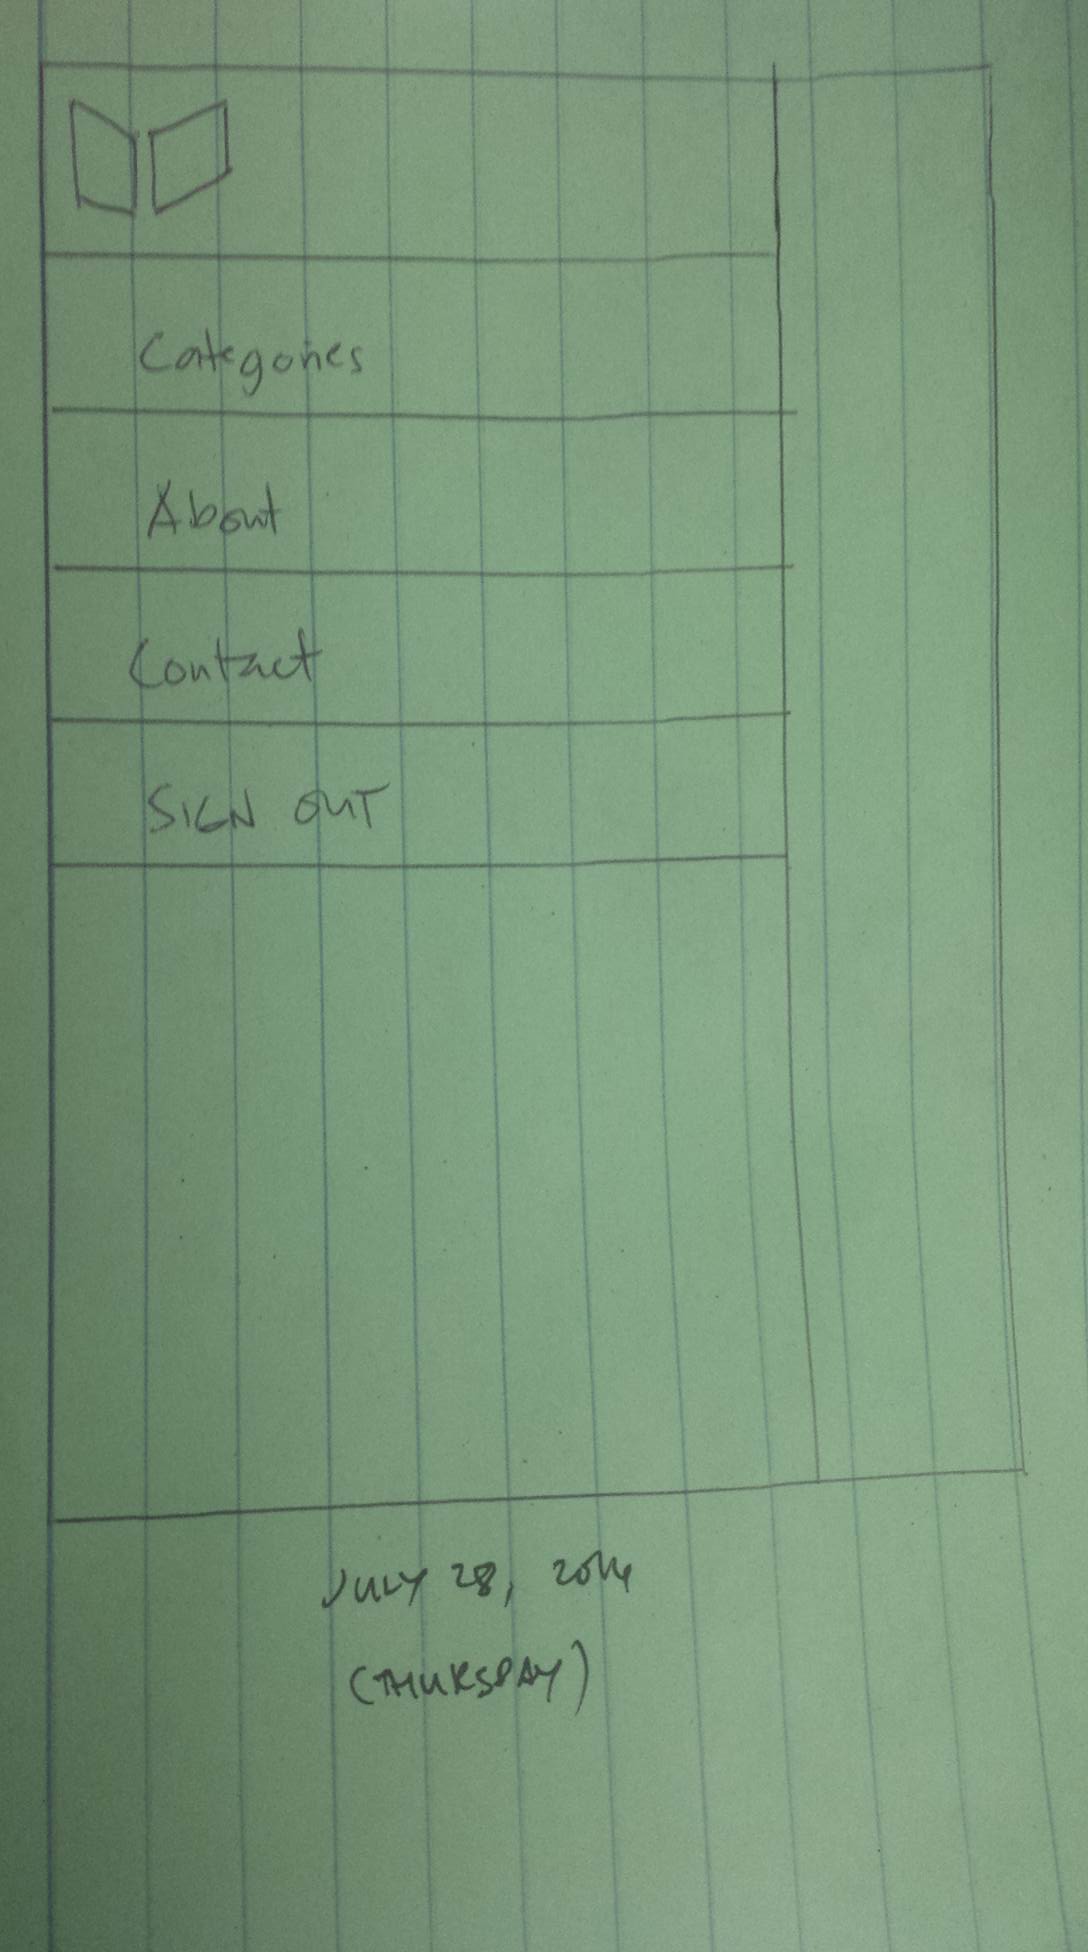 Categories
About
Contact
SIGN OUT
JULY 28, 2016
(THURSDAY)